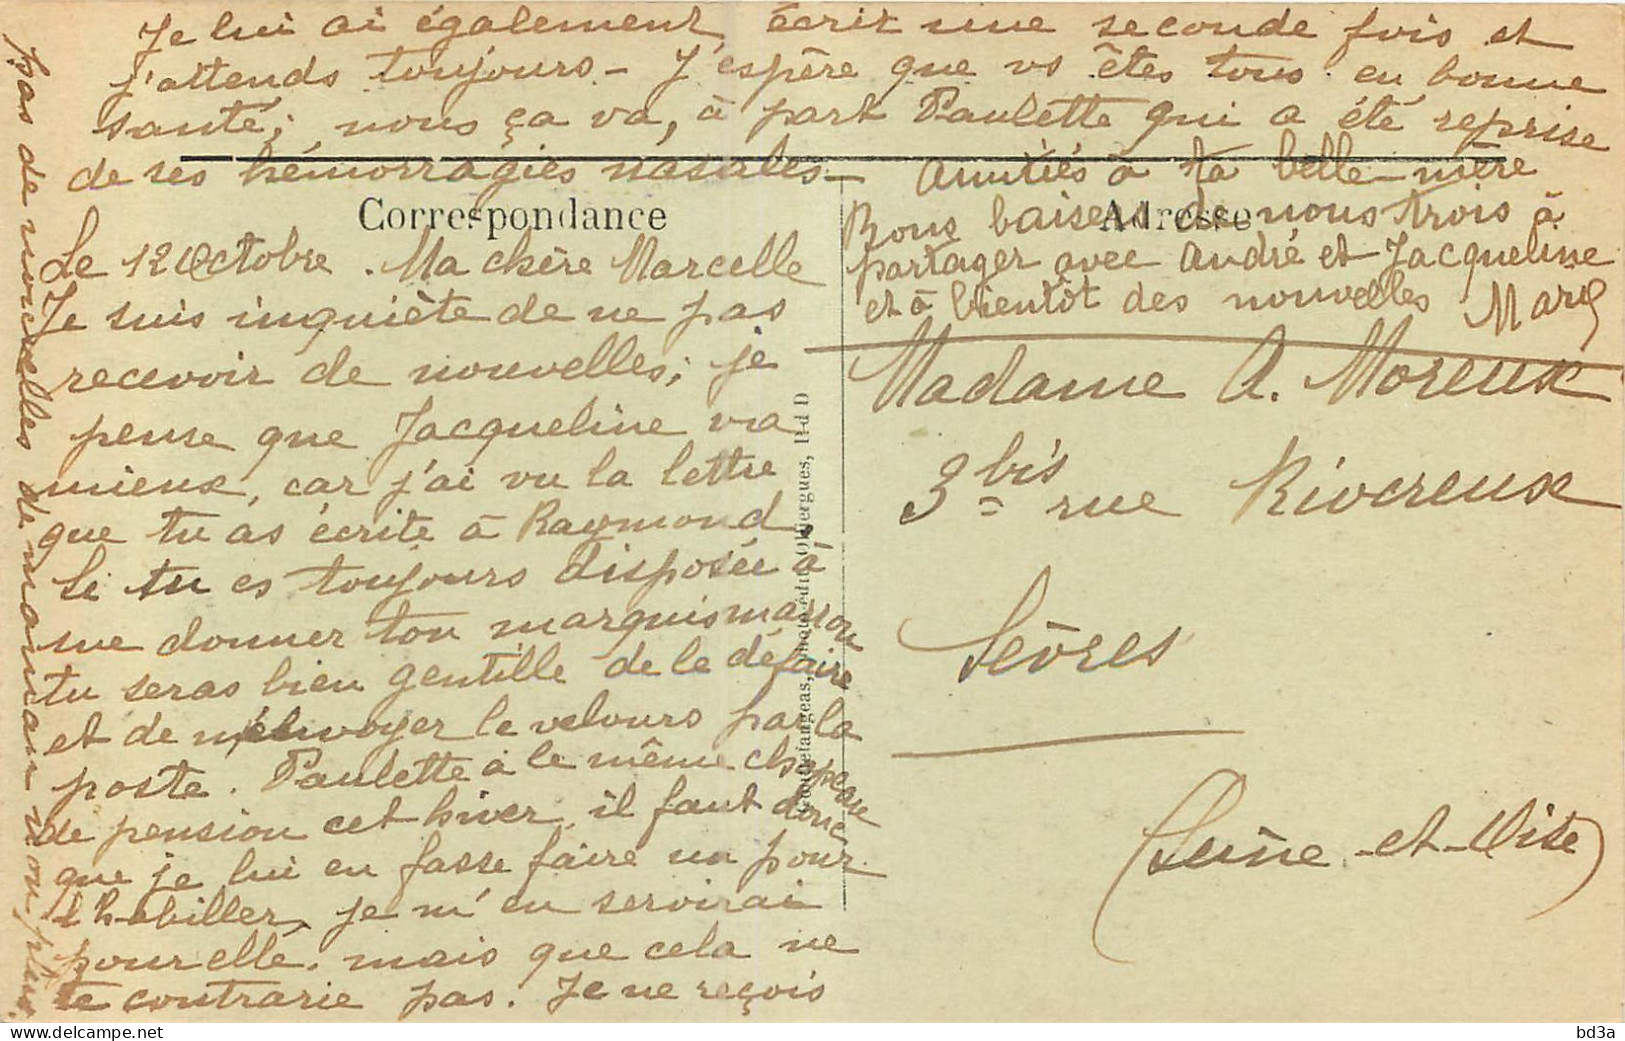 Je lui ai également écrit une seconde fois et
j'attends toujours - J'espère que vs êtes tous en bonne
santé; nous ça va, à part Paulette qui a été reprise
de ses hémorragies nasales -
Amitiés à ta belle-mère
Bons baisers de nous trois à
partager avec André et Jacqueline
et à bientôt des nouvelles
Correspondance
Adresse
Le 12 Octobre. Ma chère Marcelle
Je suis inquiète de ne pas
recevoir de nouvelles; je
pense que Jacqueline va
mieux, car j'ai vu la lettre
que tu as écrite à Raymond.
Si tu es toujours disposée à
me donner ton marquis marron
tu seras bien gentille de le défaire
et de m'envoyer le velours par la
poste. Paulette a le même chapeau
de pension cet hiver, il faut donc
que je lui en fasse faire un pour
l'habiller, je m'en servirai
pour elle. mais que cela ne
te contrarie pas. Je ne reçois
pas de nouvelles de maman non plus.
Madame A. Moreux
3 bis rue Riocreux
Sèvres
(Seine-et-Oise)
bd3a